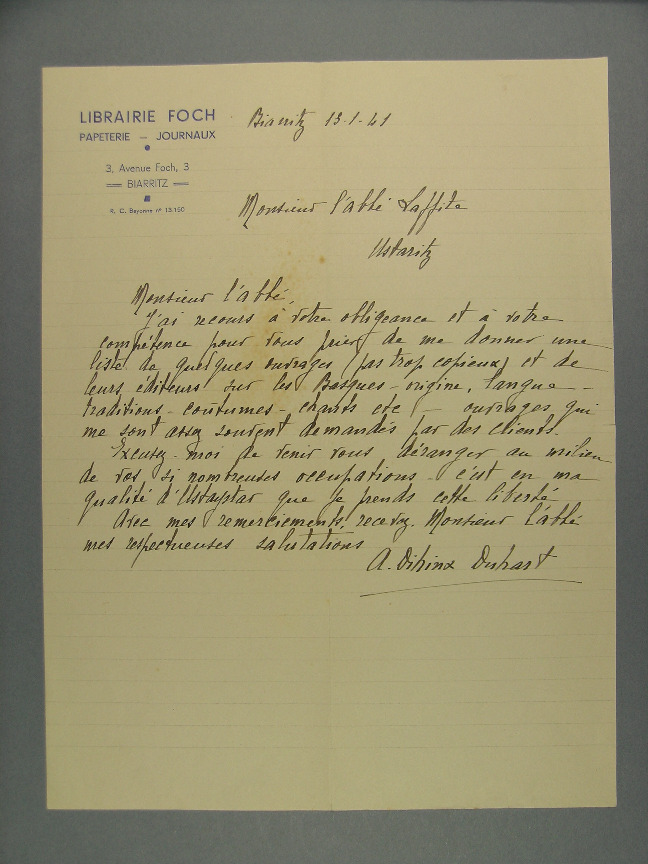 LIBRAIRIE FOCH
PAPETERIE — JOURNAUX
3, Avenue Foch, 3
BIARRITZ
R. C. Bayonne nº 13.150
Biarritz 13-1-41
Monsieur l'abbé Laffite
Ustaritz
Monsieur l'abbé,
J'ai recours à votre obligeance et à votre
compétence pour vous prier de me donner une
liste de quelques ouvrages (pas trop copieux) et de
leurs éditeurs sur les Basques - origine, langue -
traditions - coutumes - chants etc — ouvrages qui
me sont assez souvent demandés par des clients.
Excusez-moi de venir vous déranger au milieu
de vos si nombreuses occupations - c'est en ma
qualité d'Ustaritar que je prends cette liberté
Avec mes remerciements, recevez, Monsieur l'abbé
mes respectueuses salutations
A. Duhart